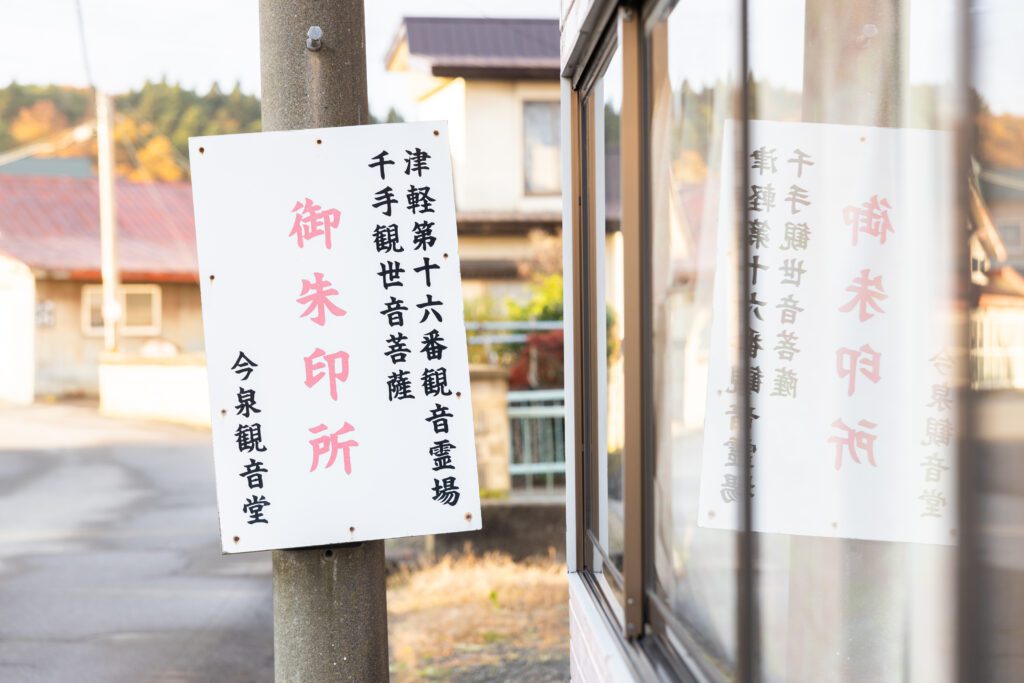 津軽第十六番観音霊場
千手観世音菩薩
御朱印所
今泉観音堂